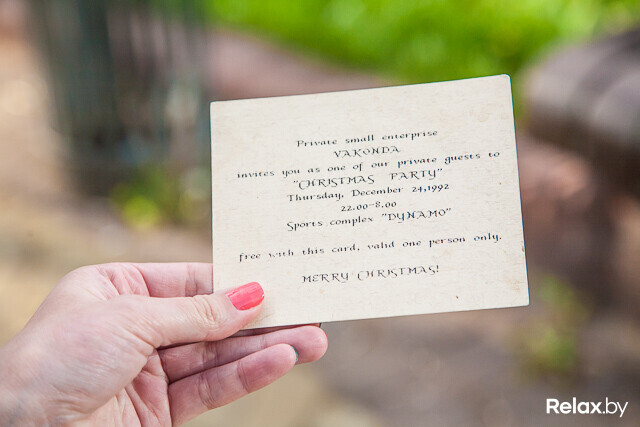 Private small enterprise
VAKONDA
invites you as one of our private guests to
"CHRISTMAS PARTY"
Thursday, December 24,1992
22.00-8.00
Sports complex "DYNAMO"
free with this card, valid one person only.
MERRY CHRISTMAS!
Relax.by